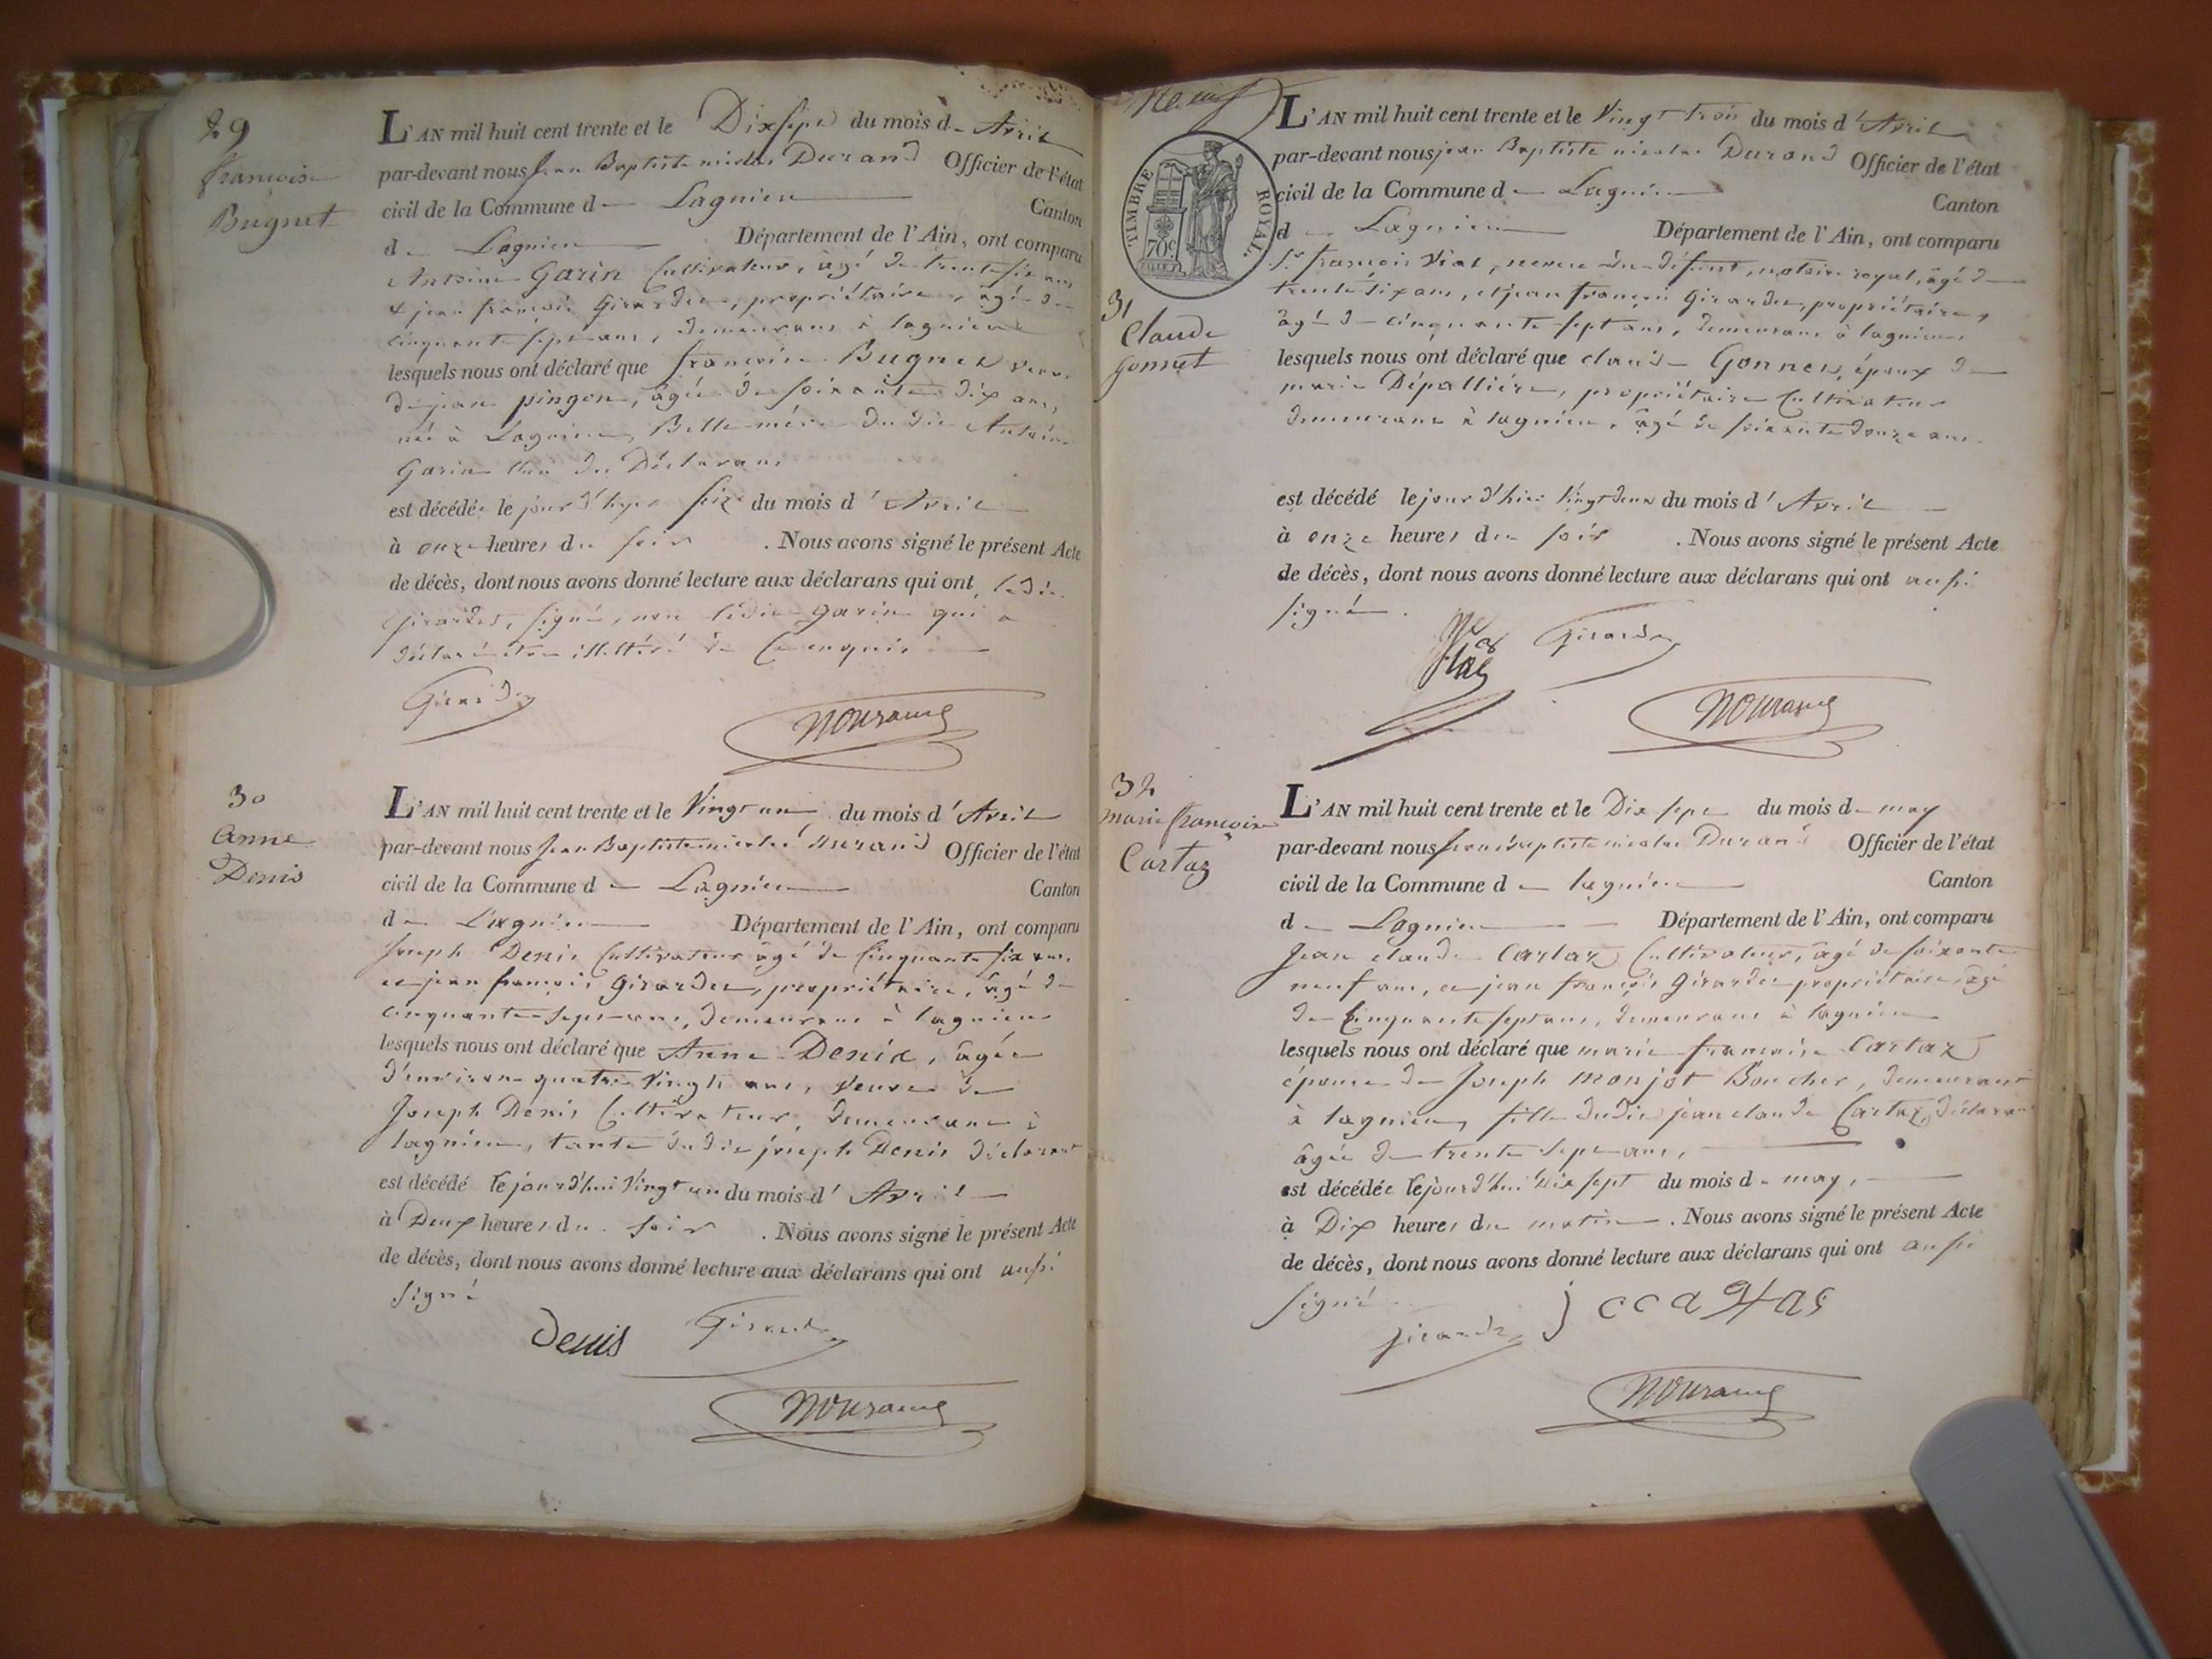 29
françoise
Bugnet
L'AN mil huit cent trente et le Dix sept du mois d'Avril
par-devant nous Jean Baptiste nicolas Durand Officier de l'état
civil de la Commune de Lagnieu Canton
de Lagnieu Département de l'Ain, ont comparu
Antoine Garin Cultivateur, âgé de trente six ans,
& jean françois Girardet, propriétaire, âgé de
cinquante sept ans, demeurans à lagnieu
lesquels nous ont déclaré que françoise Bugnet veuve
de jean pingon, âgée de soixante dix ans,
née à Lagnieu, Belle mère du dit Antoine
Garin l'un des Déclarans
est décédée le jour d'hyer seize du mois d'Avril
à onze heures du soir . Nous avons signé le présent Acte
de décès, dont nous avons donné lecture aux déclarans qui ont, ledit
Girardet, signé, non ledit Garin qui a
déclaré être illitéré de ce enquis
Girardet
NDurand
30
anne
Denis
L'AN mil huit cent trente et le Vingt un du mois d'Avril
par-devant nous Jean Baptiste nicolas Durand Officier de l'état
civil de la Commune de Lagnieu Canton
de Lagnieu Département de l'Ain, ont comparu
Joseph Denis Cultivateur âgé de Cinquante six ans,
et jean françois Girardet, propriétaire, âgé de
cinquante-sept ans, demeurans à lagnieu
lesquels nous ont déclaré que Anne Denis, âgée
d'environ quatre vingts ans, veuve de
Joseph Denis Cultivateur, demeurant à
lagnieu, tante dudit joseph Denis déclarant
est décédé le jour d'hui Vingt un du mois d'Avril
à Deux heures du soir . Nous avons signé le présent Acte
de décès, dont nous avons donné lecture aux déclarans qui ont aussi
signé
Denis Girardet
NDurand
TIMBRE ROYAL.
70c.
31
Claude
gonnet
L'AN mil huit cent trente et le Vingt trois du mois d'Avril
par-devant nous jean Baptiste nicolas Durand Officier de l'état
civil de la Commune de Lagnieu Canton
de Lagnieu Département de l'Ain, ont comparu
Sr. françois Vial, neveu du défunt, notaire royal, âgé de
trente six ans, et jean françois Girardet, propriétaire,
âgé de cinquante sept ans, demeurans à lagnieu,
lesquels nous ont déclaré que claude Gonnet, époux de
marie Dépallière, propriétaire Cultivateur
demeurant à lagnieu, âgé de soixante douze ans
est décédé le jour d'hier Vingt deux du mois d'Avril
à onze heures du soir . Nous avons signé le présent Acte
de décès, dont nous avons donné lecture aux déclarans qui ont aussi
signé.
Girardet
NDurand
32
marie françoise
Cartaz
L'AN mil huit cent trente et le Dix sept du mois de may
par-devant nous Jean Baptiste nicolas Durand Officier de l'état
civil de la Commune de lagnieu Canton
de Lagnieu Département de l'Ain, ont comparu
Jean claude Cartaz Cultivateur, âgé de soixante
neuf ans, et jean françois Girardet propriétaire, âgé
de Cinquante sept ans, demeurans à lagnieu
lesquels nous ont déclaré que marie françoise Cartaz
épouse de Joseph monjot Boucher, demeurant
à lagnieu, fille dudit jean claude Cartaz, déclarant
âgée de trente sept ans,
est décédée le jour d'hui Dix sept du mois de may,
à Dix heures du matin . Nous avons signé le présent Acte
de décès, dont nous avons donné lecture aux déclarans qui ont aussi
signé
Girardet
NDurand